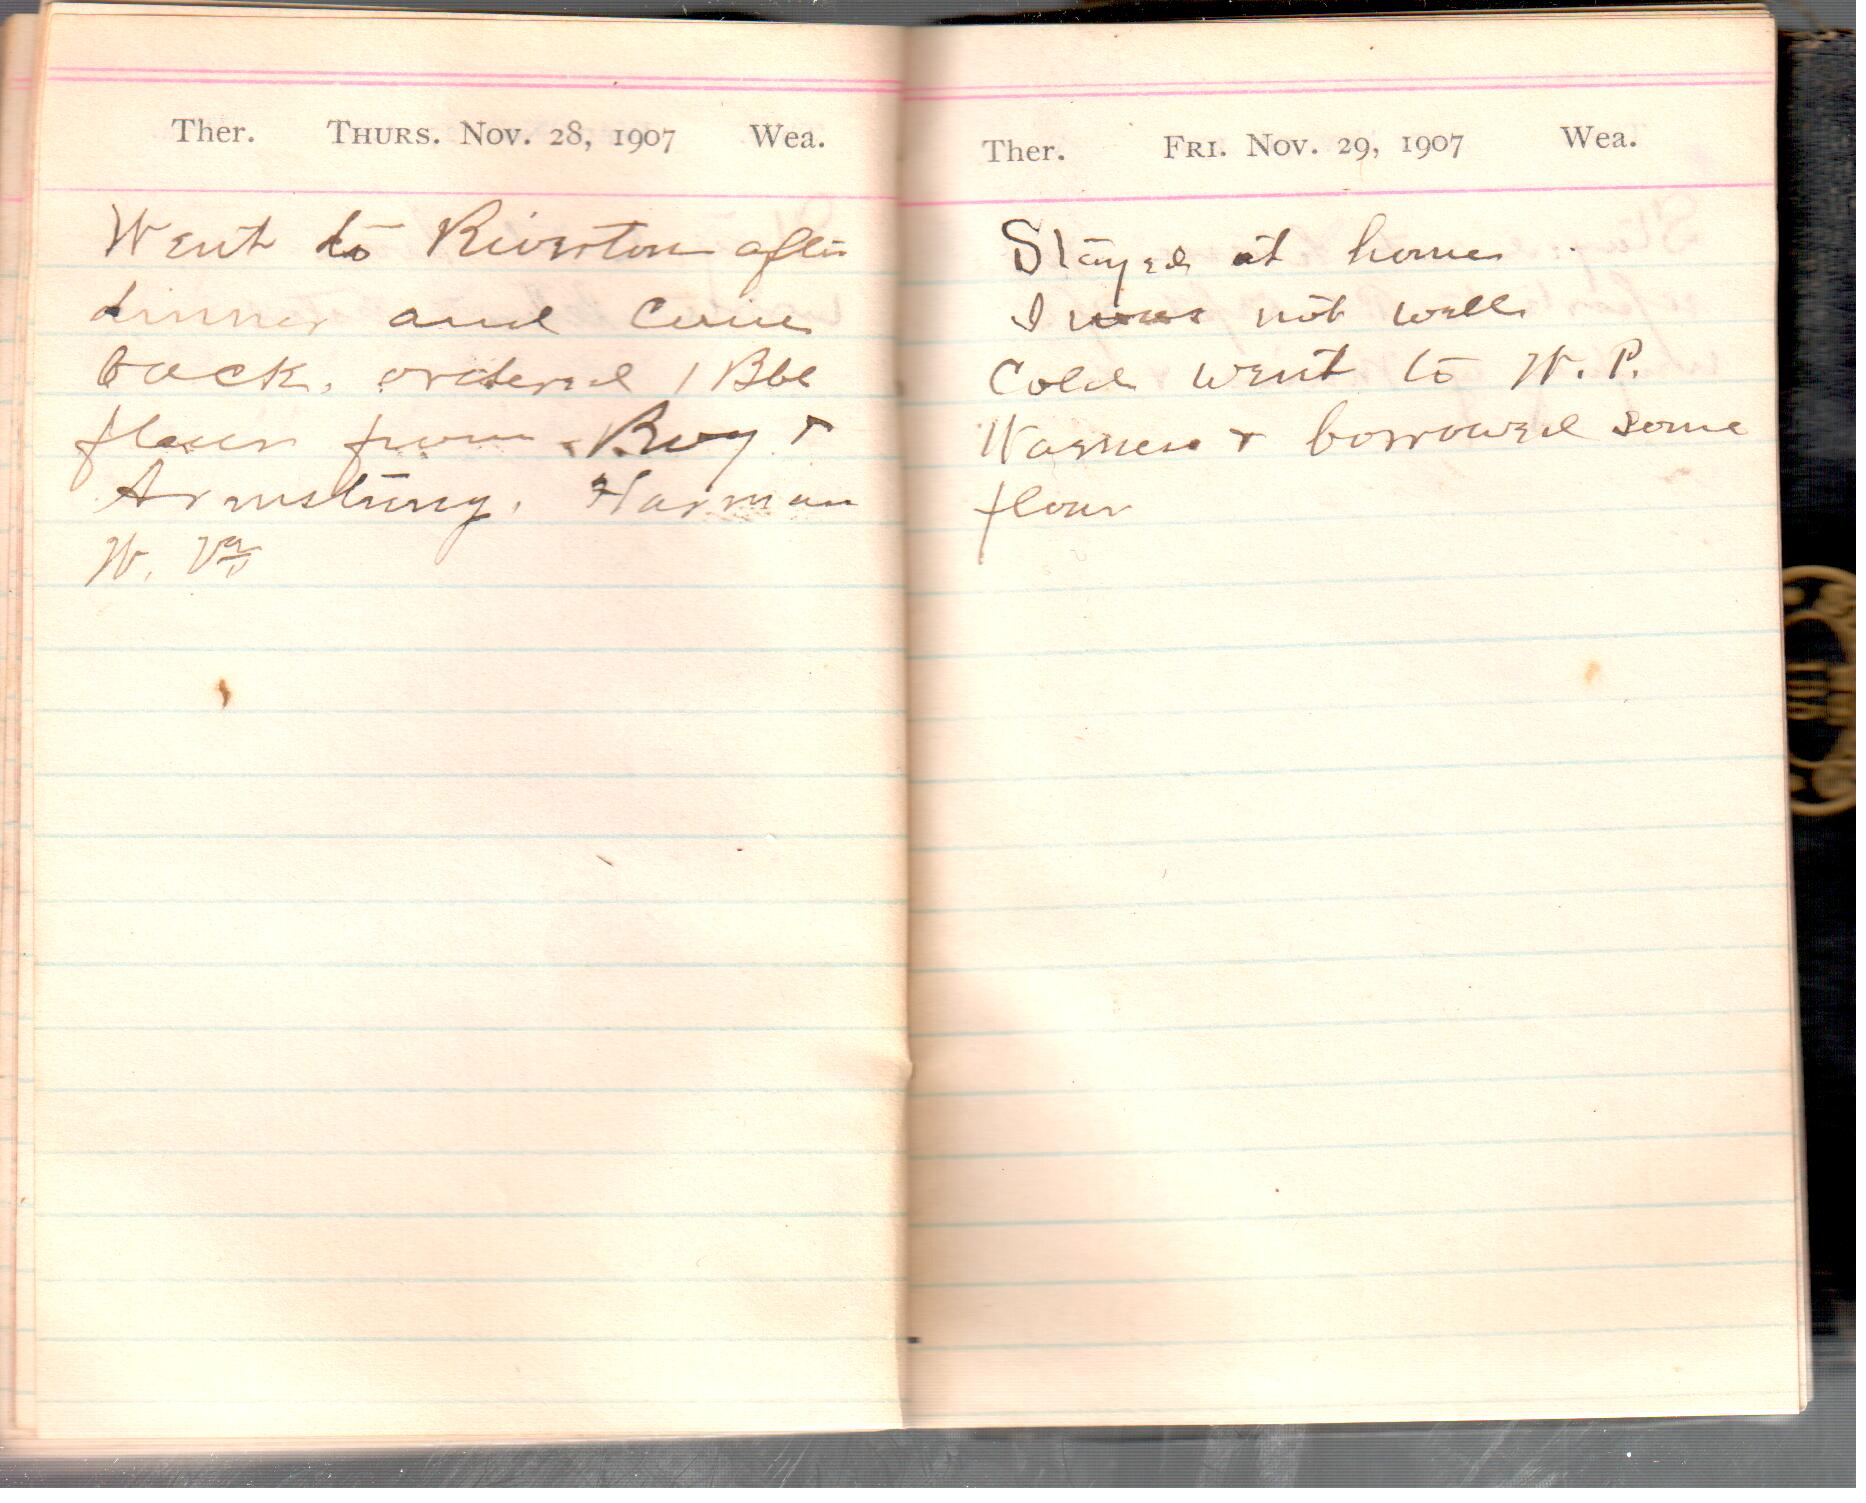 Ther. THURS. NOV. 28, 1907 Wea.
Went to Riverton after
dinner and Came
back. ordered 1 Bbl
flour from Roy &
Armstrong. Harman
W. Va
Ther. FRI. NOV. 29, 1907 Wea.
Stayed at home
I was not well
Cold went to W. P.
Warner & borrowed some
flour